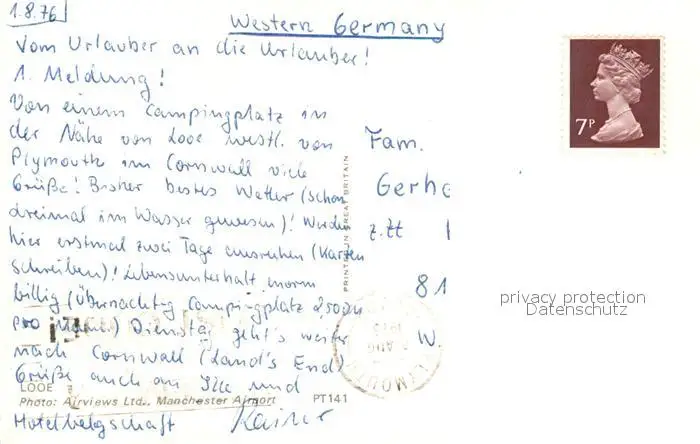 1.8.76
Western Germany
Vom Urlauber an die Urlauber!
1. Meldung!
Von einem Campingplatz in
der Nähe von Looe westl. von
Plymouth in Cornwall viele
Grüße! Bisher bestes Wetter (schon
dreimal im Wasser gewesen)! Werden
hier erstmal zwei Tage ausruhen (Karten
schreiben)! Lebensunterhalt enorm
billig (Übernachtg Campingplatz 2,50 DM
pro) Dienstag geht's weiter
nach Cornwall (Land's End)
Grüße auch an Ille und
Hotelbelegschaft
Rainer
Fam.
Gerh
z.Zt
81
W.
7P
PRINTED IN GREAT BRITAIN
LOOE
Photo: Airviews Ltd., Manchester Airport PT141
privacy protection
Datenschutz